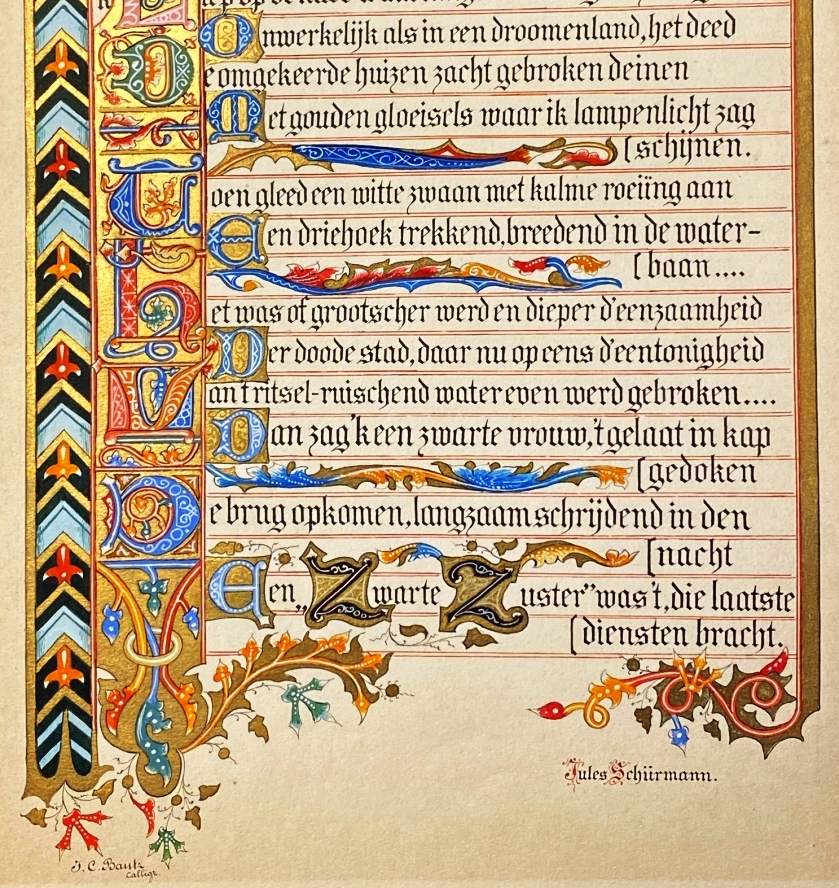 Onwerkelijk als in een droomenland, het deed
De omgekeerde huizen zacht gebroken deinen
Met gouden gloeisels waar ik lampenlicht zag
[schijnen.
Toen gleed een witte zwaan met kalme roeiïng aan
Een driehoek trekkend, breedend in de water-
[baan....
Het was of grootscher werd en dieper d'eenzaamheid
Der doode stad, daar nu opeens d'eentonigheid
Van fritsel-ruischend water even werd gebroken....
Dan zag 'k een zwarte vrouw, 't gelaat in kap
[gedoken
De brug opkomen, langzaam schrijdend in den
[nacht
Een „Zwarte Zuster” was 't, die laatste
[diensten bracht.
Jules Schürmann.
J. C. Bautz
calligr.